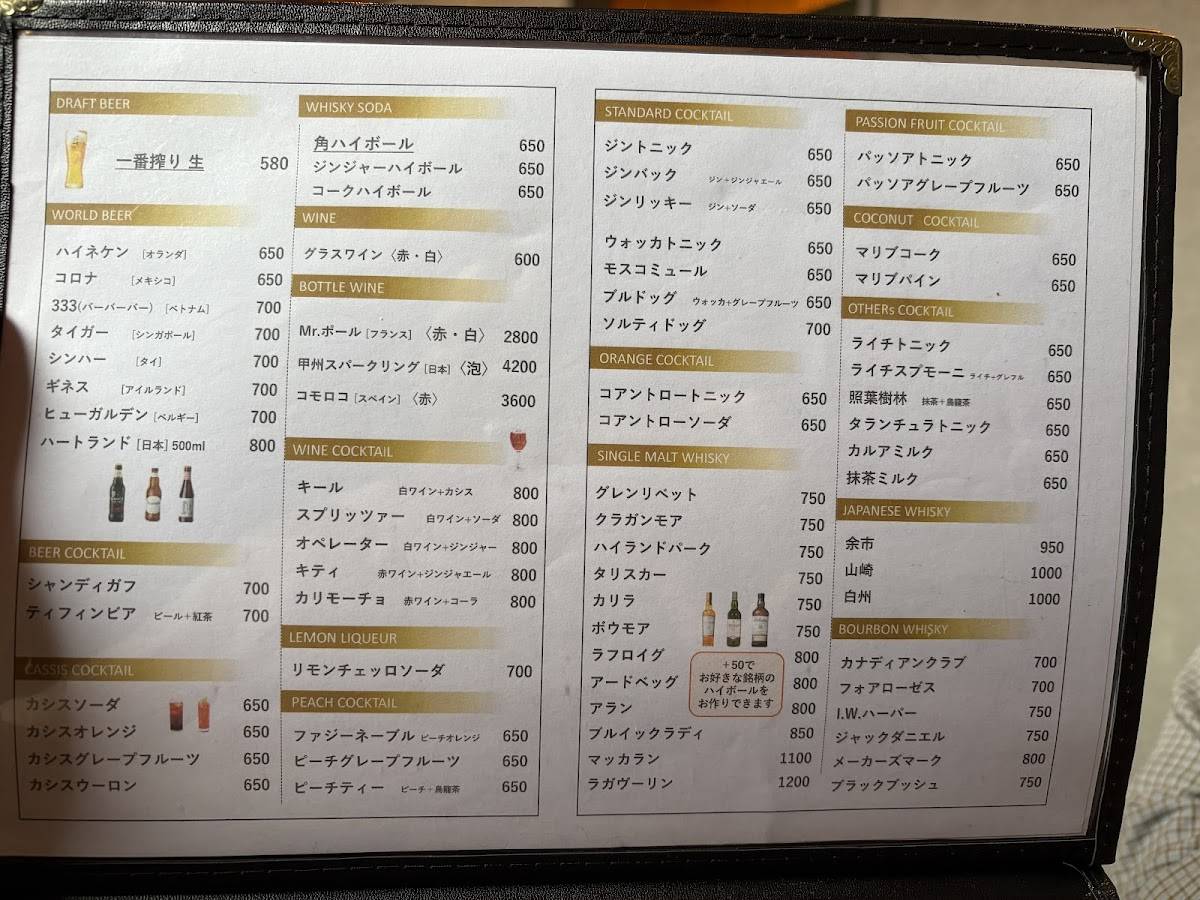 DRAFT BEER
一番搾り 生 580
WORLD BEER
ハイネケン [オランダ] 650
コロナ [メキシコ] 650
333(バーバーバー) [ベトナム] 700
タイガー [シンガポール] 700
シンハー [タイ] 700
ギネス [アイルランド] 700
ヒューガルデン [ベルギー] 700
ハートランド [日本] 500ml 800
BEER COCKTAIL
シャンディガフ 700
ティフィンビア ビール+紅茶 700
CASSIS COCKTAIL
カシスソーダ 650
カシスオレンジ 650
カシスグレープフルーツ 650
カシスウーロン 650
WHISKY SODA
角ハイボール 650
ジンジャーハイボール 650
コークハイボール 650
WINE
グラスワイン〈赤・白〉 600
BOTTLE WINE
Mr.ポール [フランス] 〈赤・白〉 2800
甲州スパークリング [日本] 〈泡〉 4200
コモロコ [スペイン] 〈赤〉 3600
WINE COCKTAIL
キール 白ワイン+カシス 800
スプリッツァー 白ワイン+ソーダ 800
オペレーター 白ワイン+ジンジャー 800
キティ 赤ワイン+ジンジャエール 800
カリモーチョ 赤ワイン+コーラ 800
LEMON LIQUEUR
リモンチェッロソーダ 700
PEACH COCKTAIL
ファジーネーブル ピーチオレンジ 650
ピーチグレープフルーツ 650
ピーチティー ピーチ+烏龍茶 650
STANDARD COCKTAIL
ジントニック 650
ジンバック ジン+ジンジャエール 650
ジンリッキー ジン+ソーダ 650
ウォッカトニック 650
モスコミュール 650
ブルドッグ ウォッカ+グレープフルーツ 650
ソルティドッグ 700
ORANGE COCKTAIL
コアントロートニック 650
コアントローソーダ 650
SINGLE MALT WHISKY
グレンリベット 750
クラガンモア 750
ハイランドパーク 750
タリスカー 750
カリラ 750
ボウモア 750
ラフロイグ 800
アードベッグ 800
アラン 800
ブルイックラディ 850
マッカラン 1100
ラガヴーリン 1200
+50で
お好きな銘柄の
ハイボールを
お作りできます
PASSION FRUIT COCKTAIL
パッソアトニック 650
パッソアグレープフルーツ 650
COCONUT COCKTAIL
マリブコーク 650
マリブパイン 650
OTHERs COCKTAIL
ライチトニック 650
ライチスプモーニ ライチ+グレフル 650
照葉樹林 抹茶+烏龍茶 650
タランチュラトニック 650
カルアミルク 650
抹茶ミルク 650
JAPANESE WHISKY
余市 950
山崎 1000
白州 1000
BOURBON WHISKY
カナディアンクラブ 700
フォアローゼス 700
I.W.ハーパー 750
ジャックダニエル 750
メーカーズマーク 800
ブラックブッシュ 750